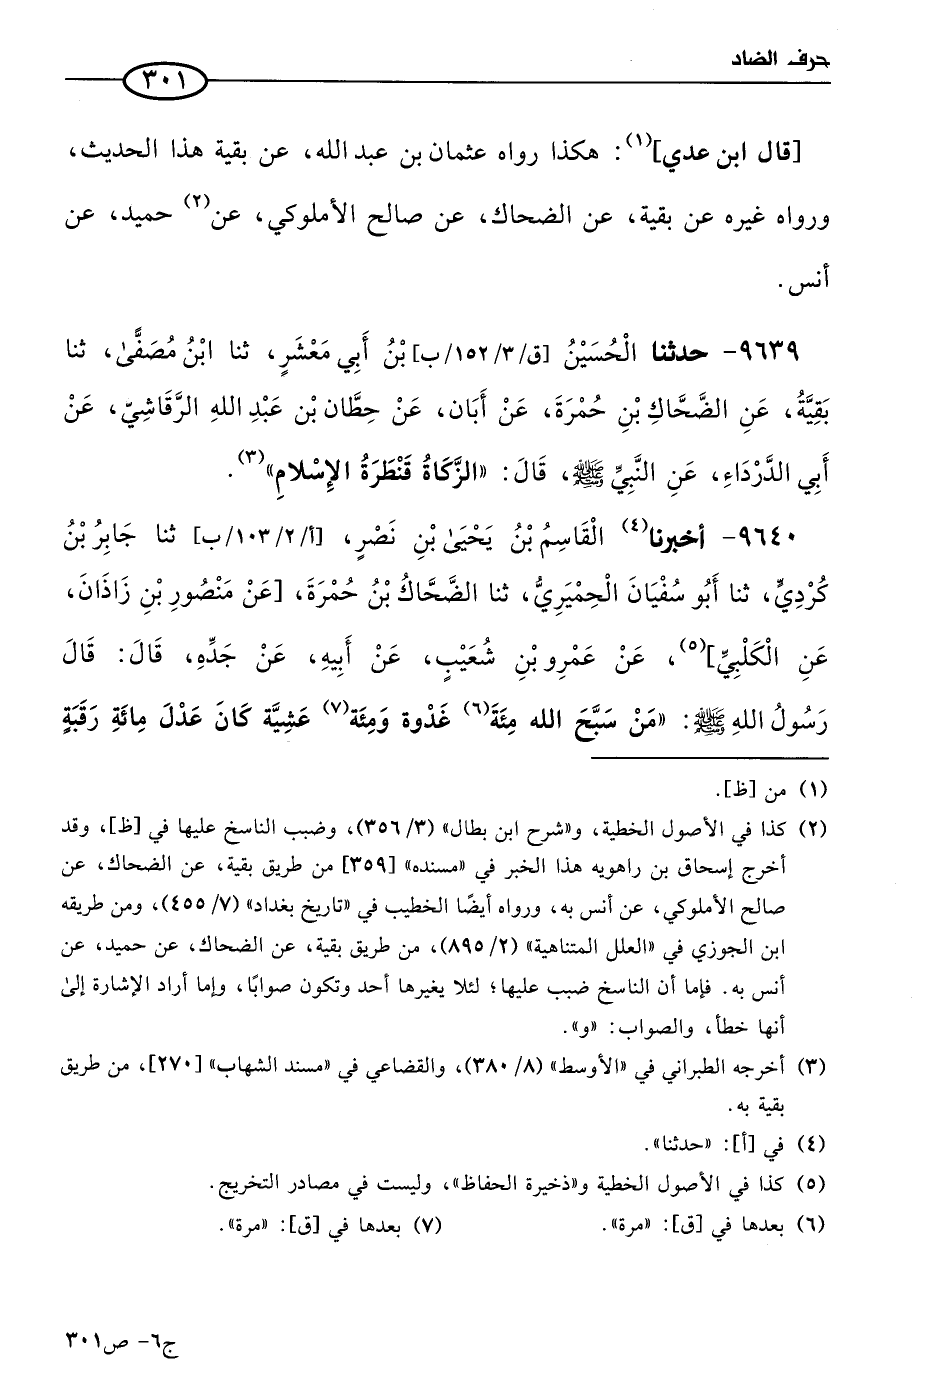 حرف الضاد
٣٠١
[قال ابن عدي](١): هكذا رواه عثمان بن عبد الله، عن بقية هذا الحديث،
ورواه غيره عن بقية، عن الضحاك، عن صالح الأملوكي، عن(٢) حميد، عن
أنس.
٩٦٣٩- حدثنا الْحُسَيْنُ [ق/٣/١٥٢/ب] بْنُ أَبِي مَعْشَرٍ، ثنا ابْنُ مُصَفًّىٰ، ثنا
بَقِيَّةُ، عَنِ الضَّحَّاكِ بْنِ حُمْرَةَ، عَنْ أَبَان، عَنْ حِطَّان بْنِ عَبْدِ اللهِ الرَّقَاشِيِّ، عَنْ
أَبِي الدَّرْدَاءِ، عَنِ النَّبِيِّ ﷺ، قَالَ: «الزَّكَاةُ قَنْطَرَةُ الإِسْلامِ»(٣).
٩٦٤٠- أخبرنا(٤) الْقَاسِمُ بْنُ يَحْيَىٰ بْنِ نَصْرٍ، [أ/٢/١٠٣/ب] ثنا جَابِرُ بْنُ
كُرْدِيٍّ، ثنا أَبُو سُفْيَانَ الْحِمْيَرِيُّ، ثنا الضَّحَّاكُ بْنُ حُمْرَةَ، [عَنْ مَنْصُورِ بْنِ زَاذَانَ،
عَنِ الْكَلْبِيِّ](٥)، عَنْ عَمْرِو بْنِ شُعَيْبٍ، عَنْ أَبِيهِ، عَنْ جَدِّهِ، قَالَ: قَالَ
رَسُولُ اللهِ ﷺ: «مَنْ سَبَّحَ الله مِئَةَ(٦) غَدْوة وَمِئَة(٧) عَشِيَّة كَانَ عَدْلَ مِائَةِ رَقَبَةٍ
(١) من [ظ].
(٢) كذا في الأصول الخطية، و«شرح ابن بطال» (٣/ ٣٥٦)، وضبب الناسخ عليها في [ظ]، وقد
أخرج إسحاق بن راهويه هذا الخبر في «مسنده» [٣٥٩] من طريق بقية، عن الضحاك، عن
صالح الأملوكي، عن أنس به، ورواه أيضًا الخطيب في «تاريخ بغداد» (٧/ ٤٥٥)، ومن طريقه
ابن الجوزي في «العلل المتناهية» (٢/ ٨٩٥)، من طريق بقية، عن الضحاك، عن حميد، عن
أنس به. فإما أن الناسخ ضبب عليها؛ لئلا يغيرها أحد وتكون صوابًا، وإما أراد الإشارة إلىٰ
أنها خطأ، والصواب: «و».
(٣) أخرجه الطبراني في «الأوسط» (٨/ ٣٨٠)، والقضاعي في «مسند الشهاب» [٢٧٠]، من طريق
بقية به.
(٤) في [أ]: «حدثنا».
(٥) كذا في الأصول الخطية و«ذخيرة الحفاظ»، وليست في مصادر التخريج.
(٦) بعدها في [ق]: «مرة». (٧) بعدها في [ق]: «مرة».
ج٦- ص٣٠١